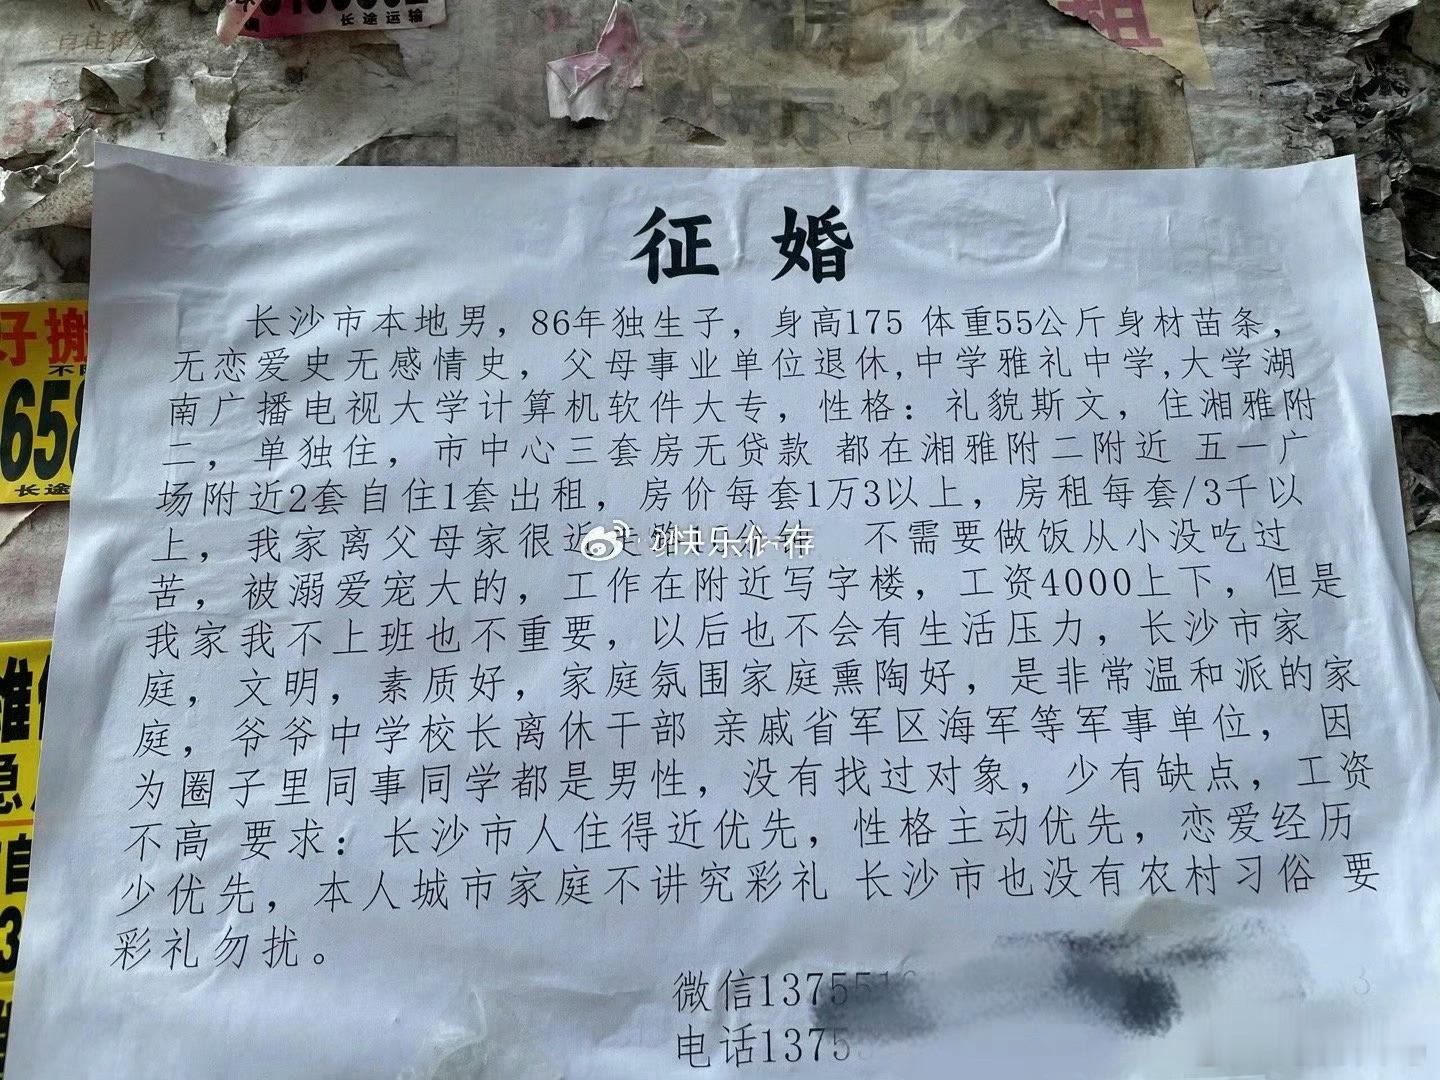 长途运输
租
1200元/月
征婚
长沙市本地男，86年独生子，身高175 体重55公斤身材苗条，
无恋爱史无感情史，父母事业单位退休,中学雅礼中学,大学湖
南广播电视大学计算机软件大专，性格：礼貌斯文，住湘雅附
二，单独住，市中心三套房无贷款 都在湘雅附二附近 五一广
场附近2套自住1套出租，房价每套1万3以上，房租每套/3千以
上，我家离父母家很近 不需要做饭从小没吃过
@快乐价存
苦，被溺爱宠大的，工作在附近写字楼，工资4000上下，但是
我家我不上班也不重要，以后也不会有生活压力，长沙市家
庭，文明，素质好，家庭氛围家庭熏陶好，是非常温和派的家
庭，爷爷中学校长离休干部 亲戚省军区海军等军事单位，因
为圈子里同事同学都是男性，没有找过对象，少有缺点，工资
不高 要求：长沙市人住得近优先，性格主动优先，恋爱经历
少优先，本人城市家庭不讲究彩礼 长沙市也没有农村习俗 要
彩礼勿扰。
微信13755
电话1375
好搬
658
长途